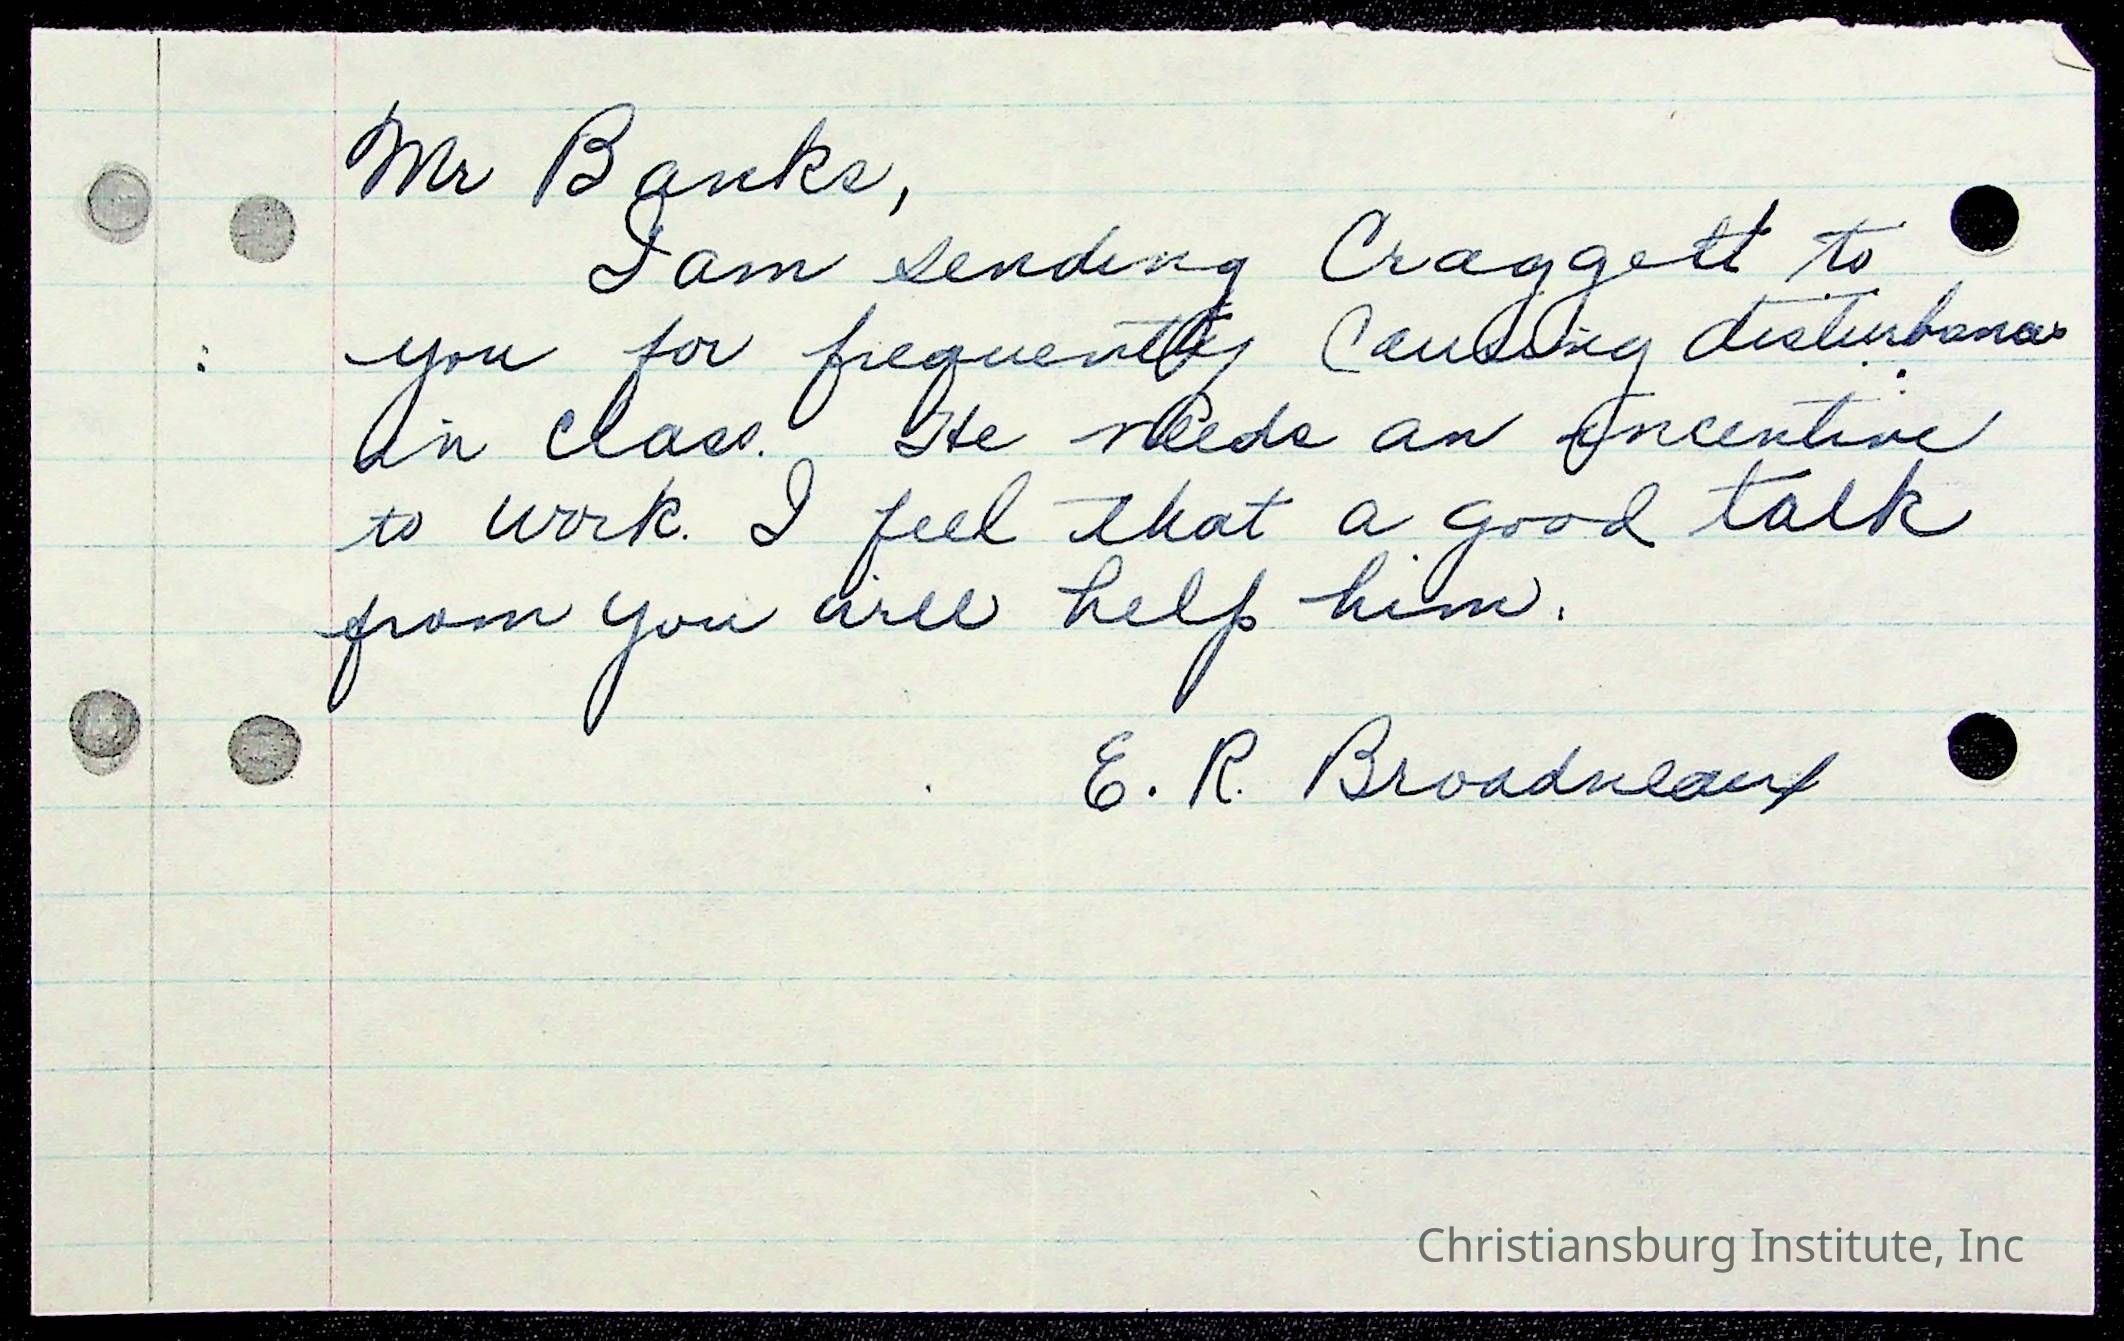 Mr Banks,
I am sending Craggett to
you for frequently Causing disturbances
in class. He needs an incentive
to work. I feel that a good talk
from you will help him.
E. R. Broadneaux
Christiansburg Institute, Inc